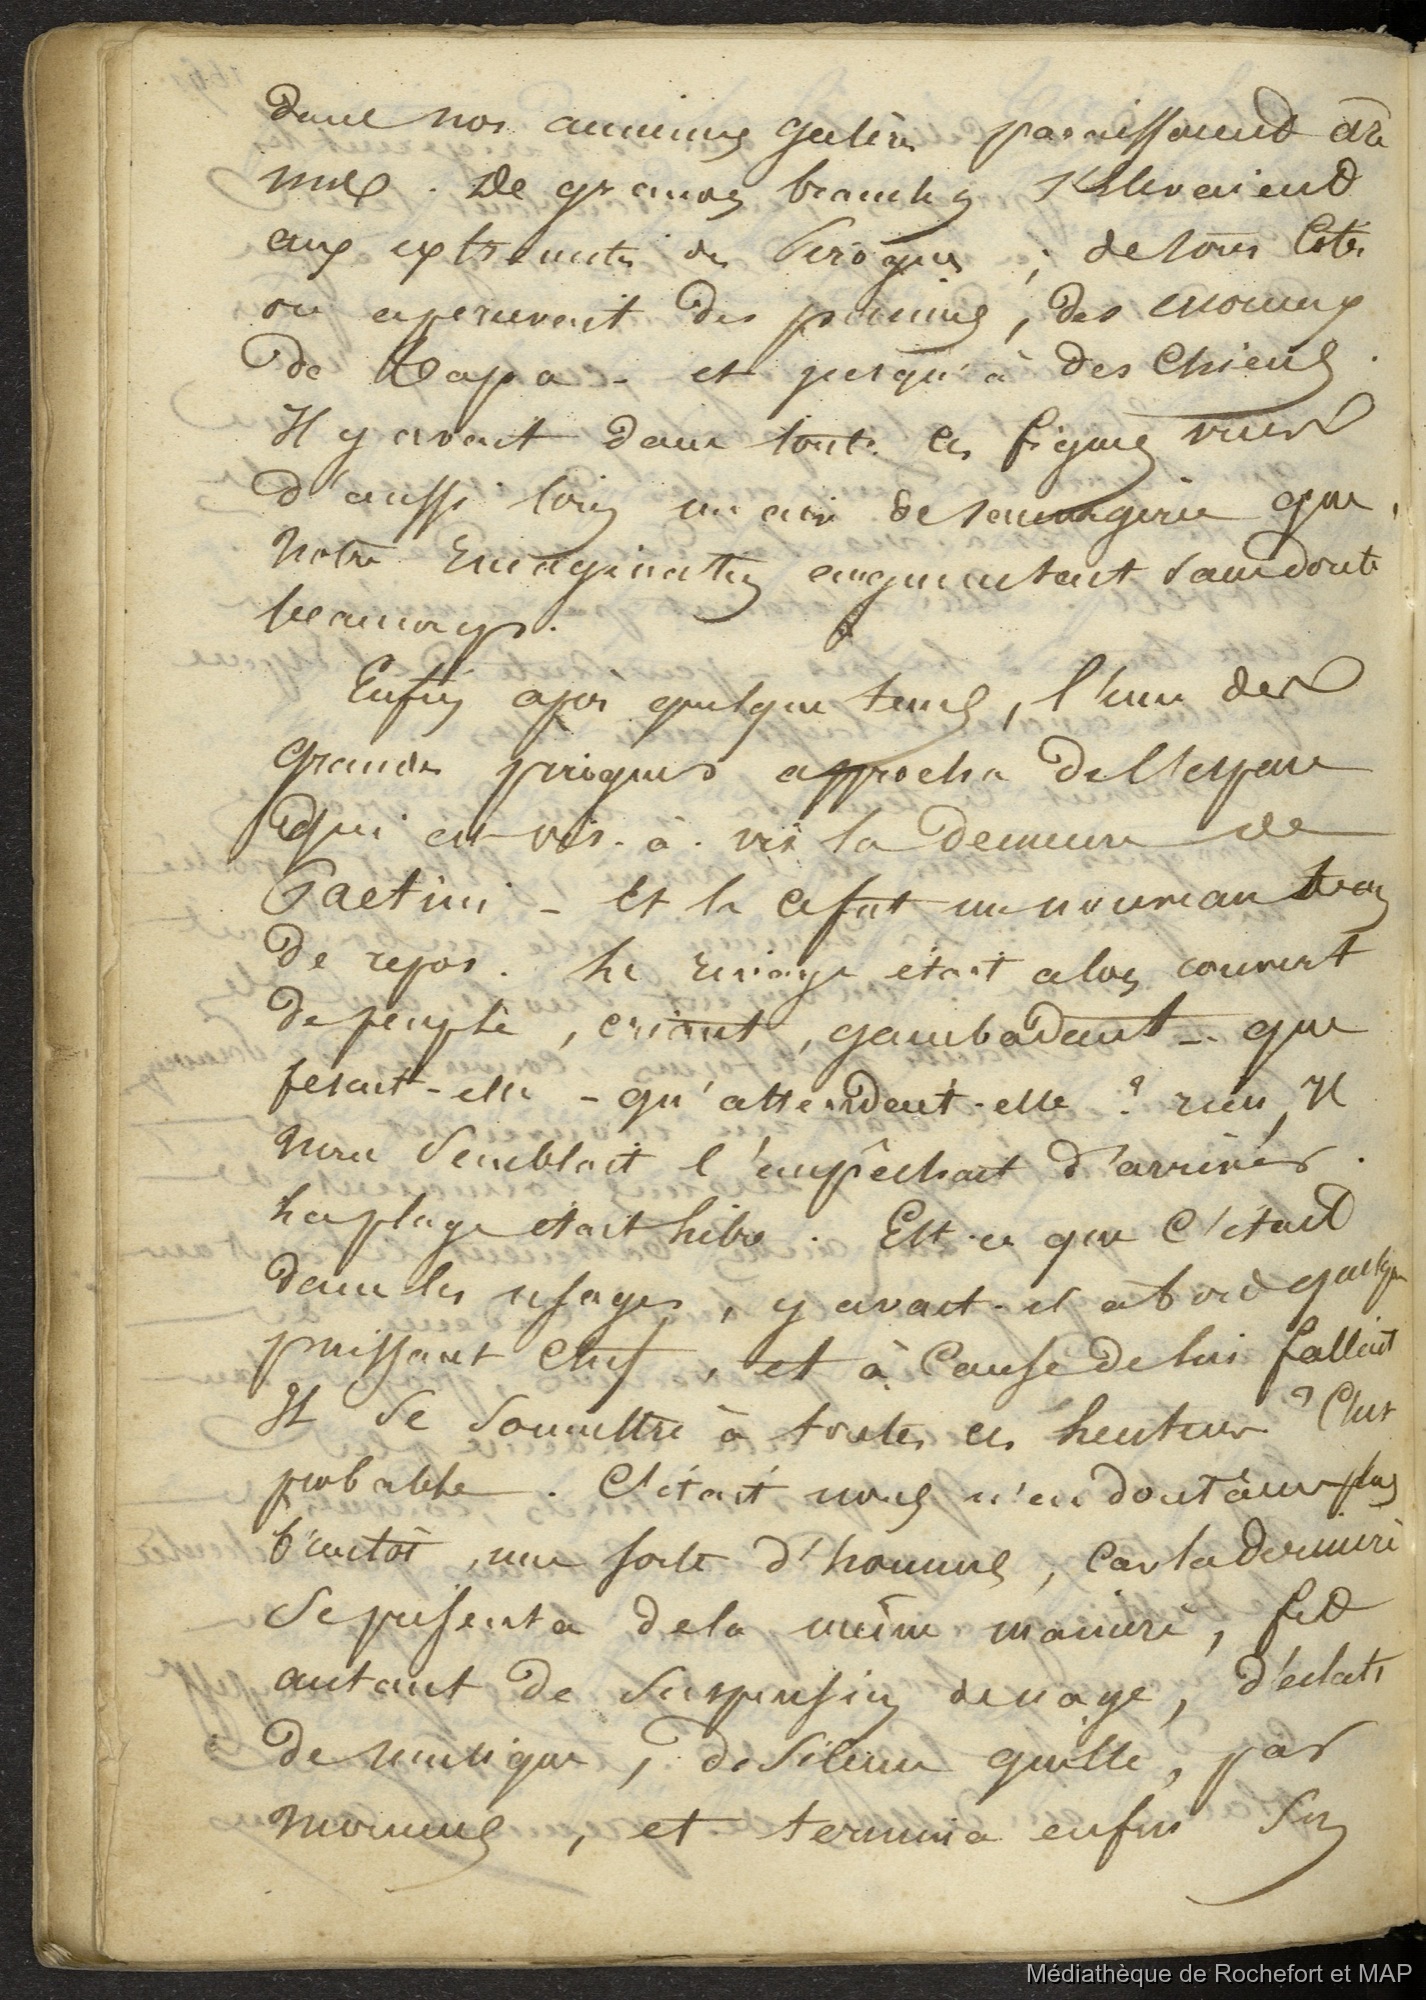 dans nos anciennes galères paraissaient
De grandes branches s'élevaient
aux extrémités des Pirogues ; de tous Cotés
on apercevait des
de tapa - et jusqu'à des Chiens.
Il y avait dans toutes ces figures vues
d'aussi loin un air de sauvagerie que
Notre Imagination augmentait sans doute
beaucoup.
Enfin après quelque tems, l'une des
grandes pirogues approcha de l'espace
qui est vis-à-vis la demeure de
Paetini - Et là ce fut un nouveau tems
de repos. Le rivage était alors couvert
de peuple, criant, gambadant - que
fesait-elle - qu'attendait-elle ? rien, Il
Nous Semblait l'empêchait d'arriver.
La plage était libre. Est-ce que C'était
dans les usages, y avait-il abord quelque
puissant Chef, et à Cause de lui fallait
Il Se Soumettre à toutes ces lenteurs ? C'est
probable. C'était nous n'en doutâmes plus
bientôt, une sorte d'hommes, Car la dernière
Se présenta de la même manière, fit
autant de Suspension de nage, d'éclats
de musique, de Silence, par
Momens, et termina enfin Son
Médiathèque de Rochefort et MAP